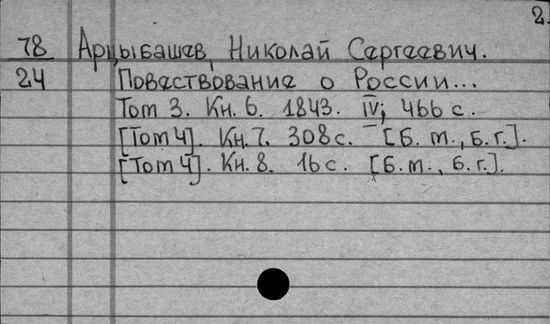 2.
78 Арцыбашев, Николай Сергеевич.
24 Повествование о России...
Том 3. Кн. 6. 1843. IV; 466 с.
[Том 4]. Кн. 7. 308 с. – [Б. м., Б. г.].
[Том 4]. Кн. 8. 16 с. [Б. м., Б. г.].